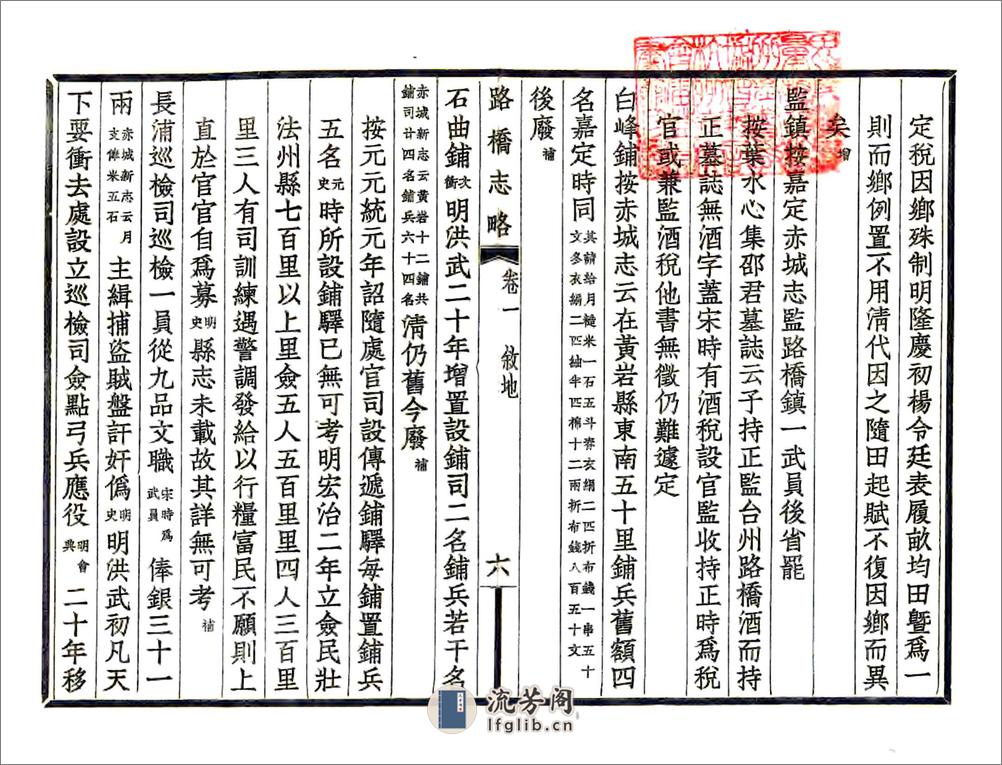 定稅因鄉殊制明隆慶初楊令廷表履畝均田曁爲一
則而鄉例置不用清代因之隨田起賦不復因鄉而異
矣增
監鎮按嘉定赤城志監路橋鎮一武員後省罷
按葉水心集邵君墓誌云子持正監台州路橋酒而持
正墓誌無酒字蓋宋時有酒稅設官監收持正時爲稅
官或兼監酒稅他書無徵仍難遽定
白峰鋪按赤城志云在黃岩縣東南五十里鋪兵舊額四
名嘉定時同其請給月糙米一石五斗春衣絹二匹折布錢一串五十文冬衣絹二匹紬半匹棉十二兩折布錢八百五十文
後廢補
路橋志略 卷一 敘地 六
石曲鋪次衝明洪武二十年增置設鋪司二名鋪兵若干名
赤城新志云黃岩十二鋪共鋪司廿四名鋪兵六十四名清仍舊今廢補
按元元統元年詔隨處官司設傳遞鋪驛每鋪置鋪兵
五名元史時所設鋪驛已無可考明宏治二年立僉民壯
法州縣七百里以上里僉五人五百里里四人三百里
里三人有司訓練遇警調發給以行糧富民不願則上
直於官官自爲募明史縣志未載故其詳無可考補
長浦巡檢司巡檢一員從九品文職宋時爲武員俸銀三十一
兩赤城新志云月支俸米五石主緝捕盜賊盤詰奸僞明史明洪武初凡天
下要衝去處設立巡檢司僉點弓兵應役明會典二十年移
流芳阁
lfglib.cn